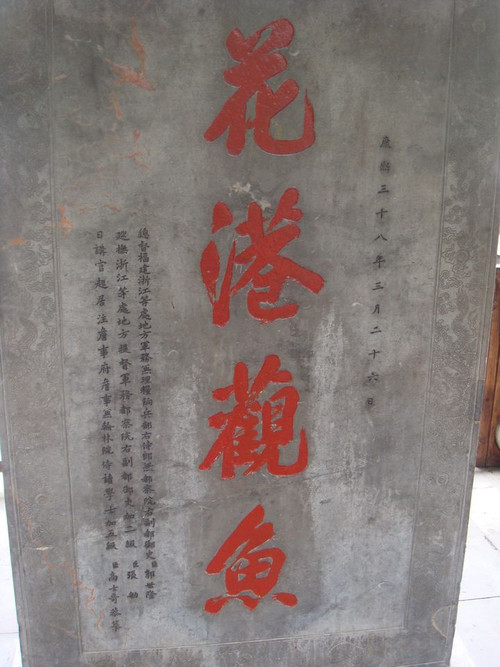 康熙三十八年三月二十六日
花港觀魚
總督福建浙江等處地方軍務兼理糧餉兵部右侍郎兼都察院右副都御史臣郭世隆
巡撫浙江等處地方提督軍務都察院右副都御史加二級臣張勄
日講官起居注詹事府詹事兼翰林院侍讀學士加五級臣高士奇恭摹